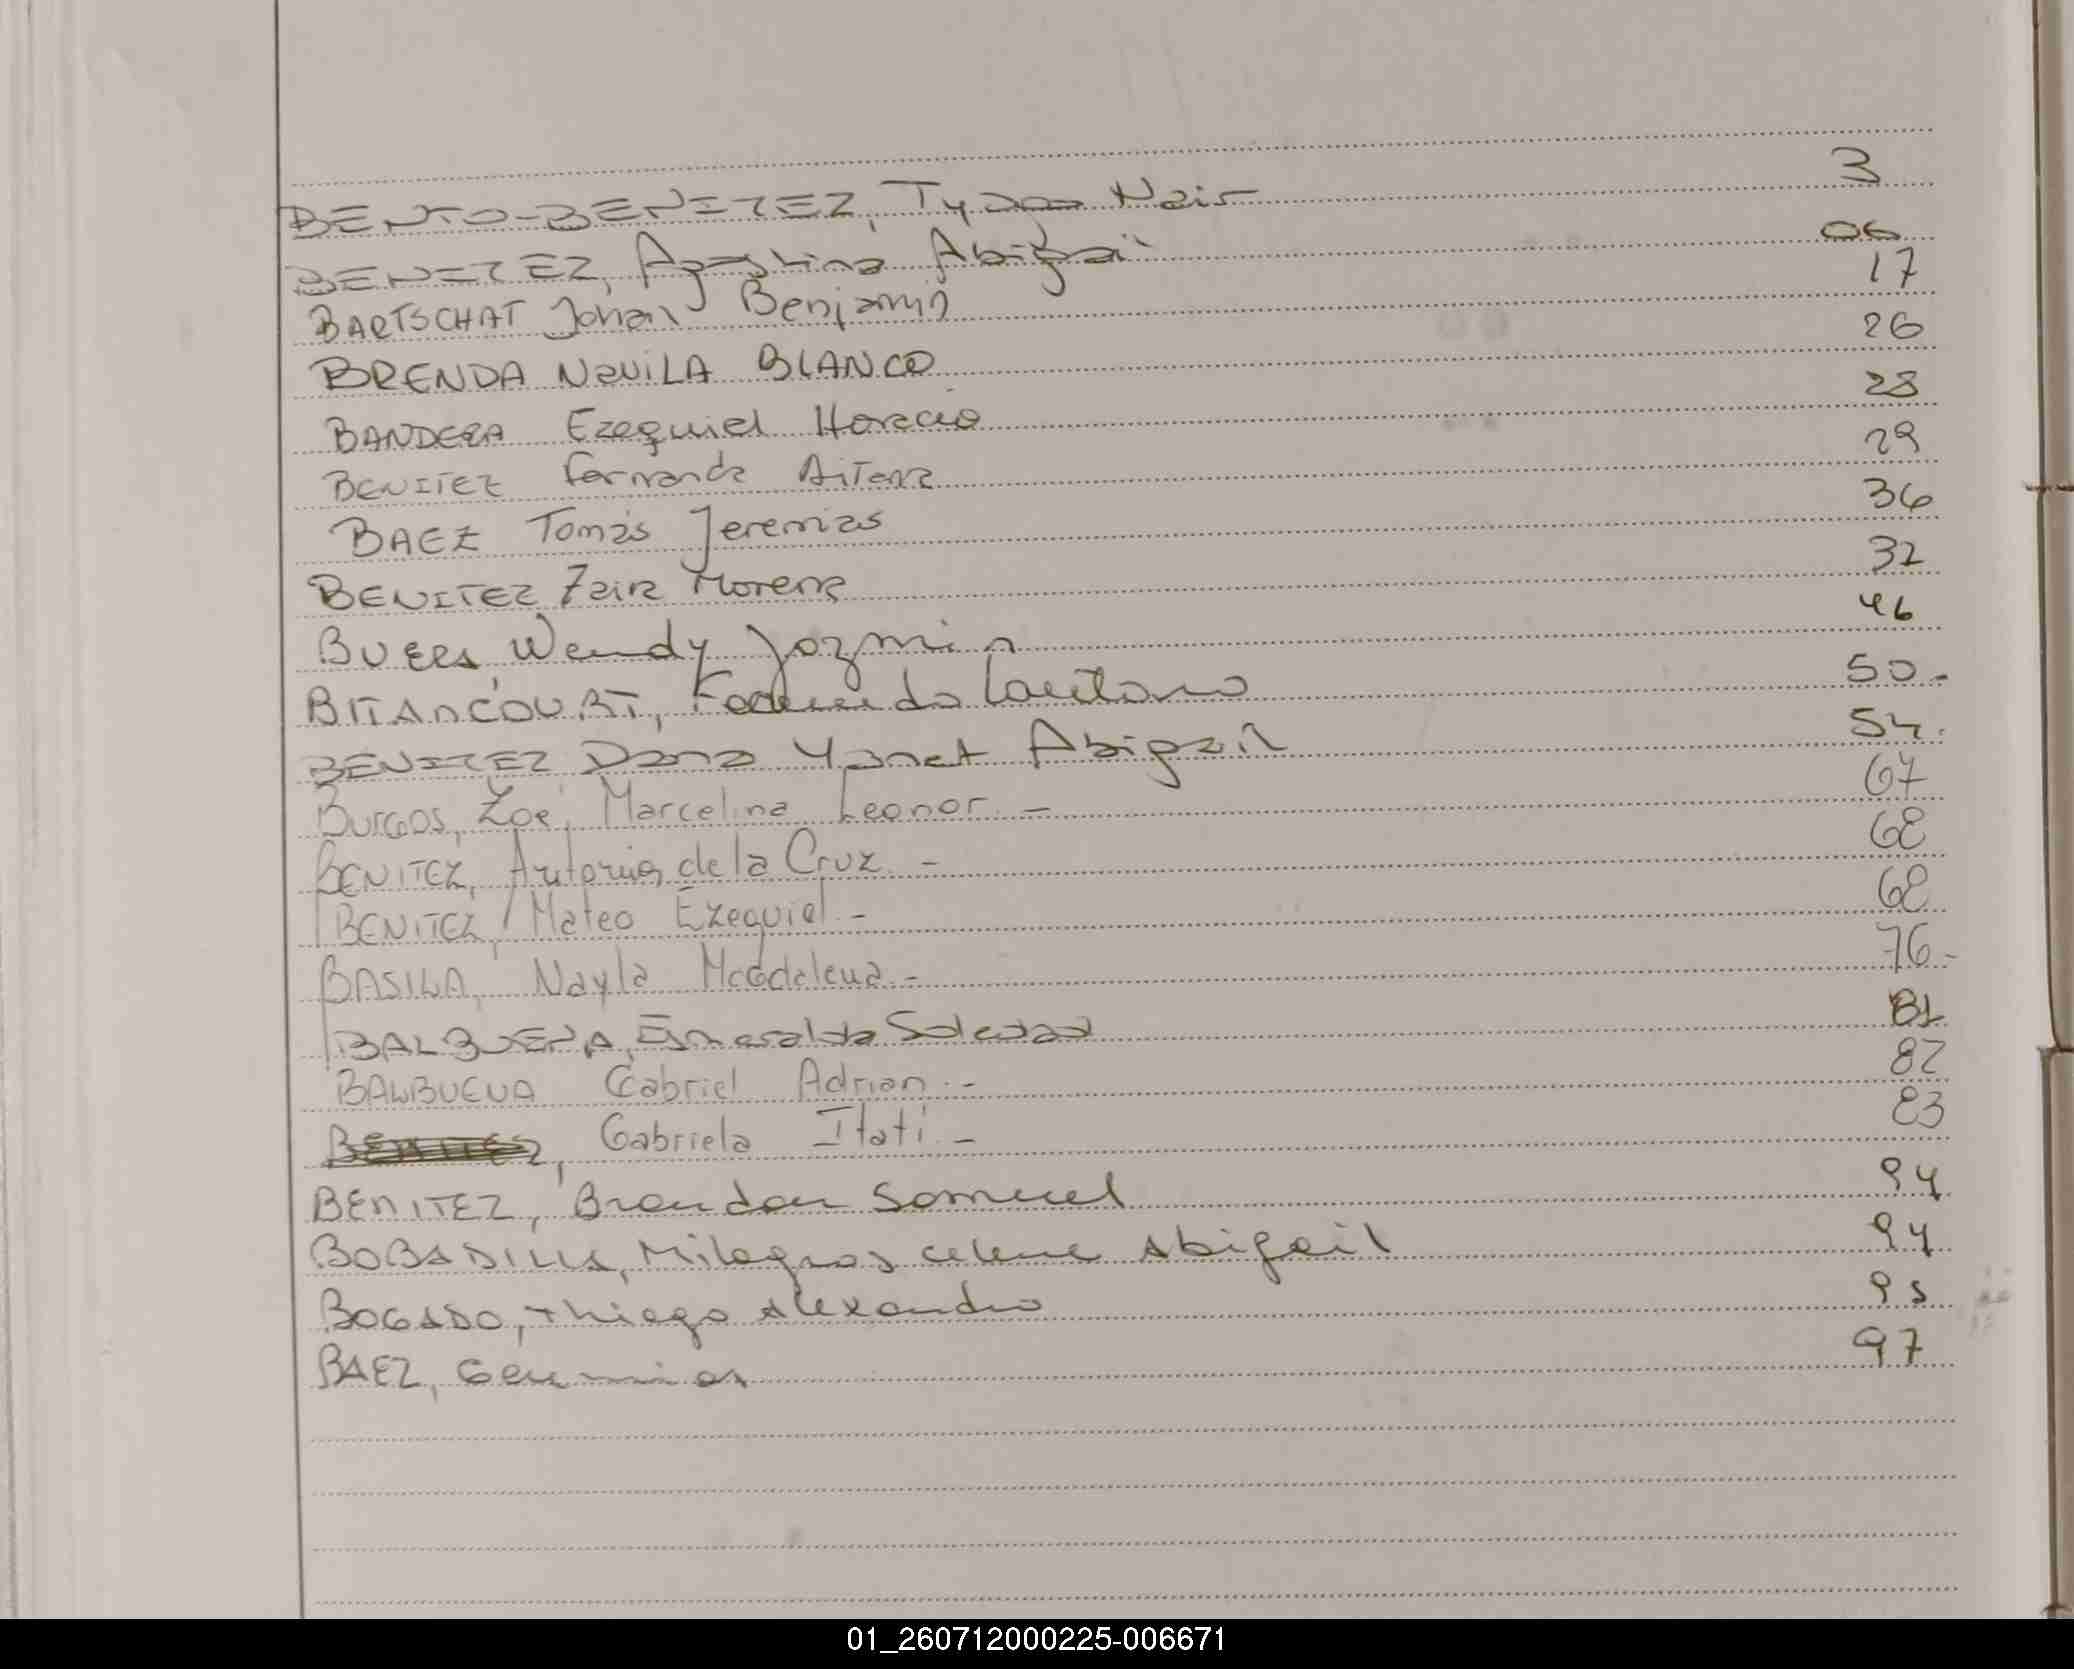 BENTO-BENITEZ, Tyago Nair 3
BENITEZ, Agostina Abigai 06
BARTSCHAT Johan Benjamin 17
BRENDA NAVILA BLANCO 26
BANDERA Ezequiel Horacio 28
BENITEZ Fernanda Aitana 29
BAEZ Tomás Jeremias 36
BENITEZ Zaira Morena 32
BUERA, Wendy Jazmin 46
BITANCOURT, Facundo Lautaro 50.
BENITEZ Dana Yanet Abigail 54.
BURGOS, Zoe, Marcelina Leonor - 67
BENITEZ, Antonia, de la Cruz - 68
BENITEZ, Mateo Ezequiel - 68
BASILA, Nayla Magdalena - 76-
BALBUENA, Esmeralda Soledad 81
BALBUENA Gabriel Adrian - 82
BENITEZ, Gabriela Itati - 83
BENITEZ, Brandon Samuel 94
BOBADILLA, Milagros Celene Abigail 94
BOGADO, Thiago Alexandro 95
BAEZ, 97
01_260712000225-006671